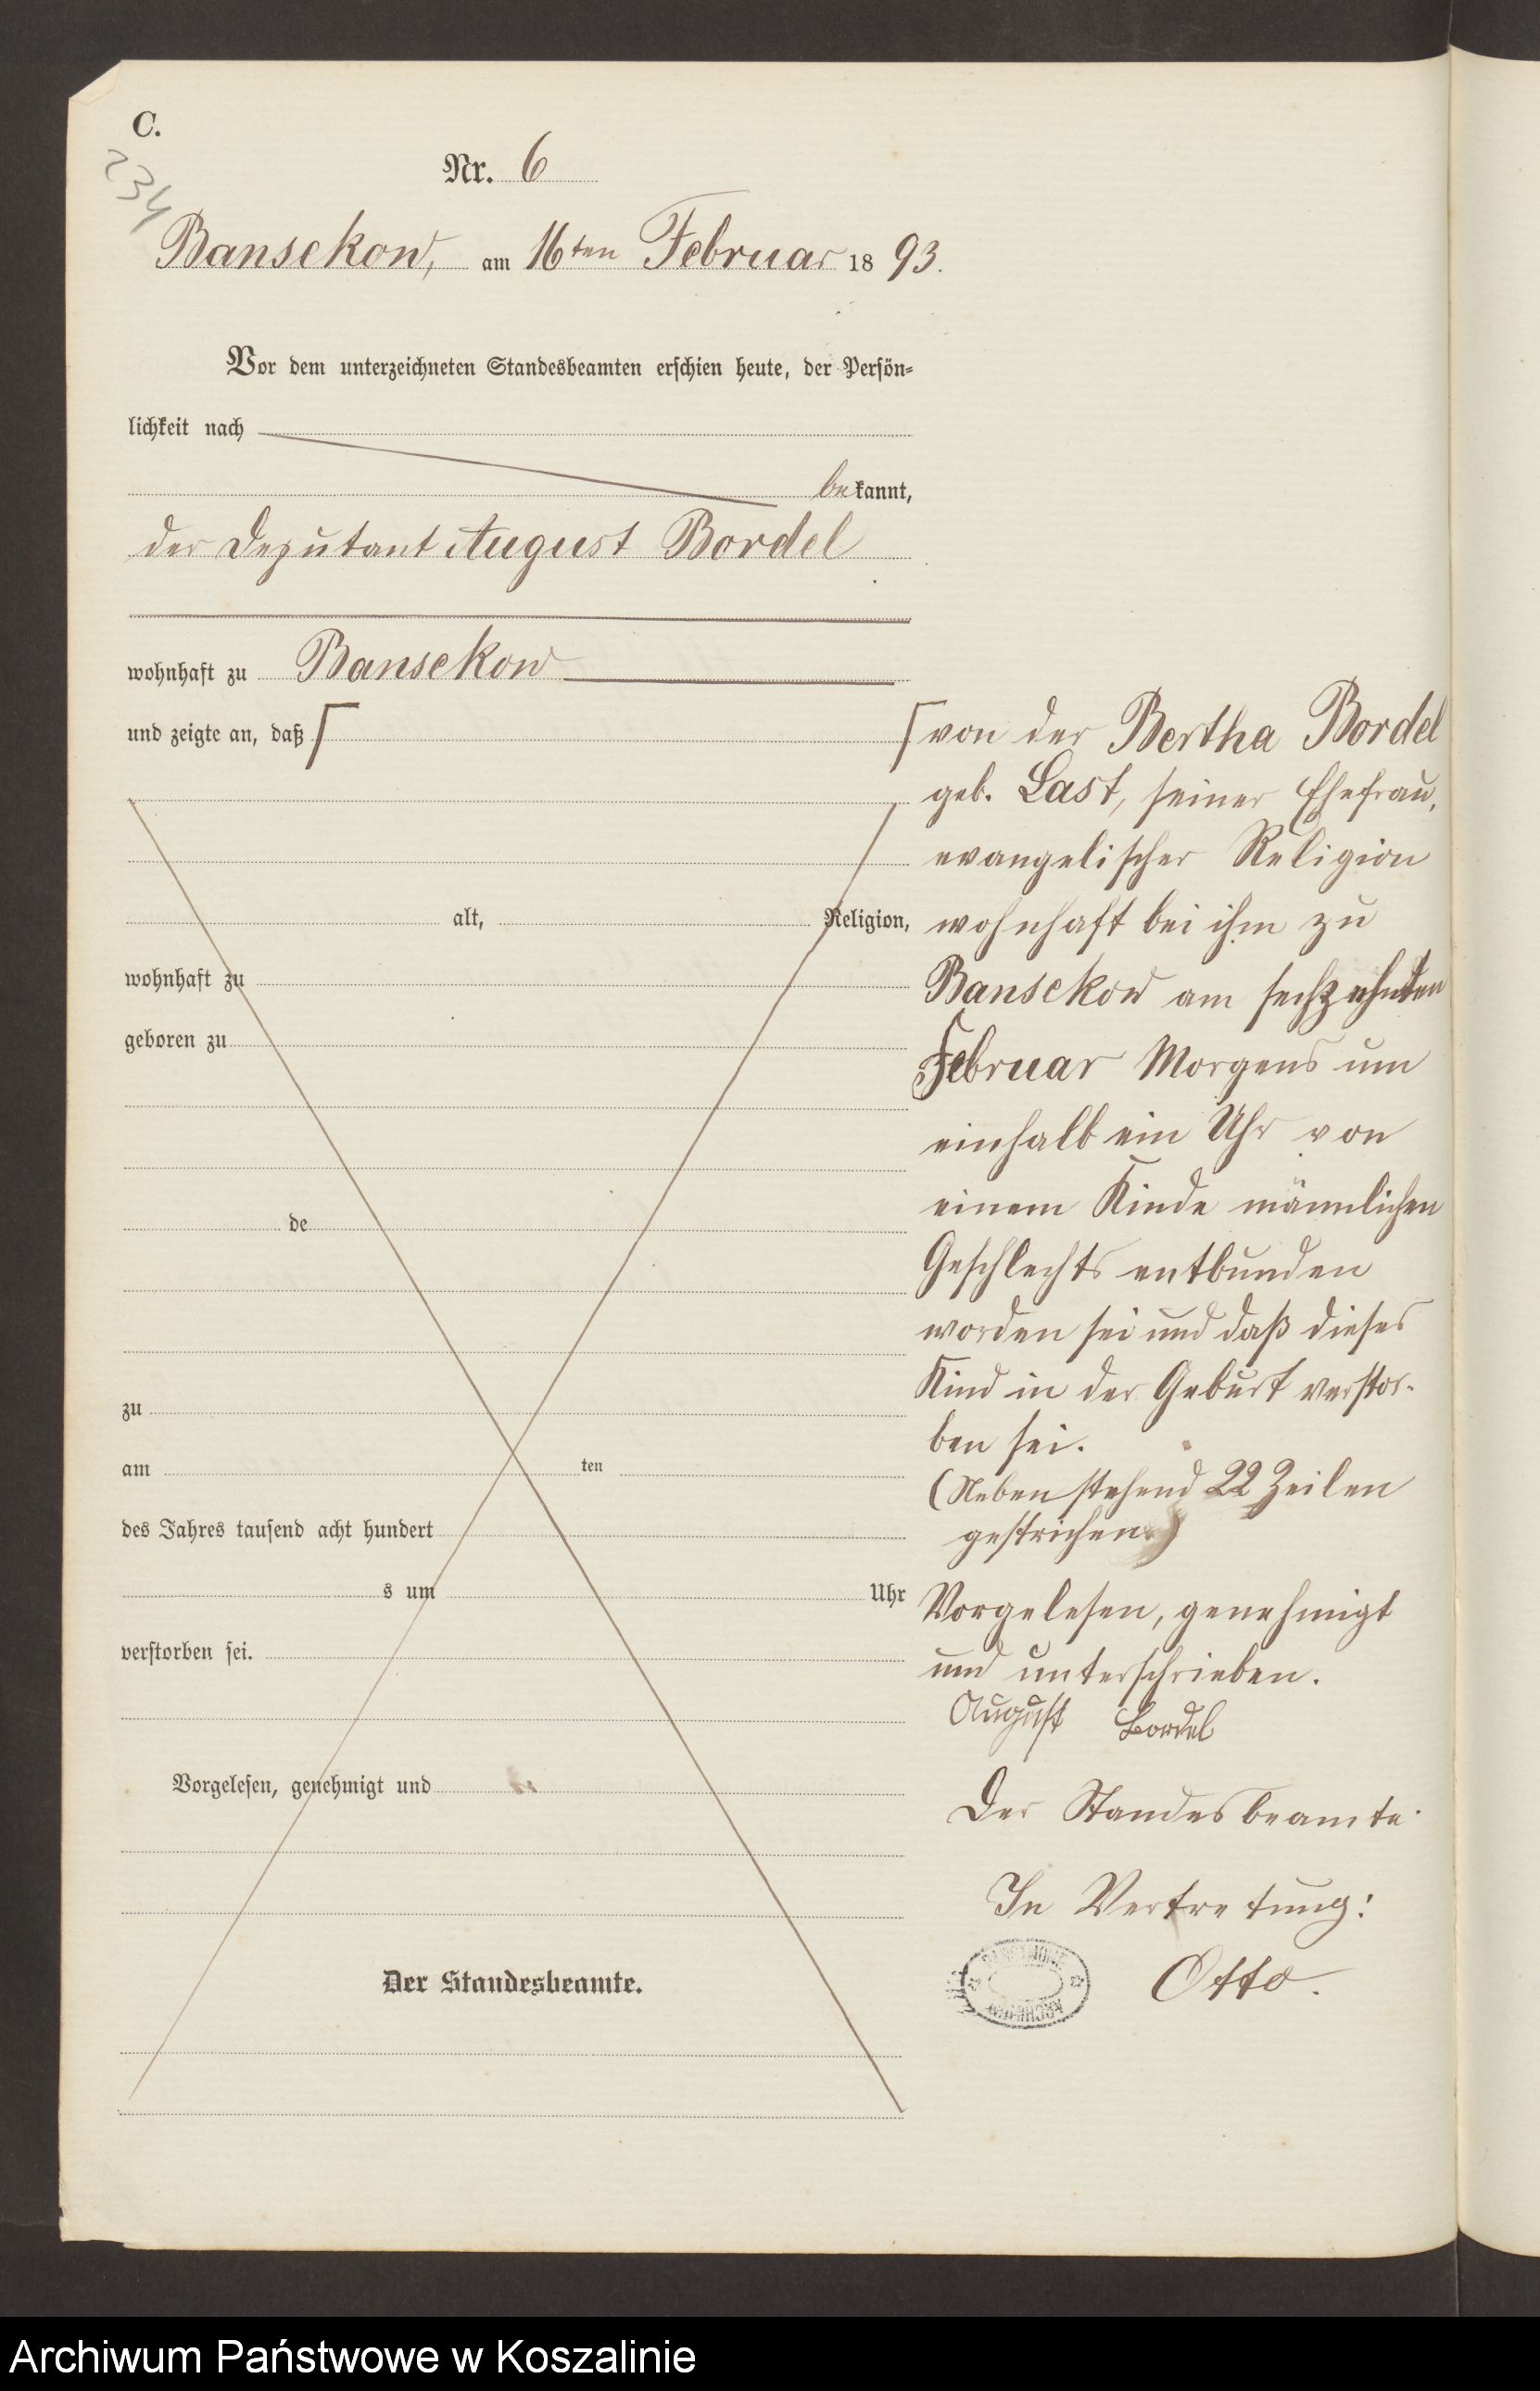 C.
234
Nr. 6
Bansekow, am 16ten Februar 1893.
Vor dem unterzeichneten Standesbeamten erschien heute, der Persön=
lichkeit nach
bekannt,
der Deputant August Bordel
wohnhaft zu Bansekow
und zeigte an, daß ⌈
alt, Religion,
wohnhaft zu
geboren zu
de
zu
am ten
des Jahres tausend acht hundert
s um Uhr
verstorben sei.
Vorgelesen, genehmigt und
Der Standesbeamte.
⌈von der Bertha Bordel
geb. Last, seiner Ehefrau,
evangelischer Religion
wohnhaft bei ihm zu
Bansekow am sechzehnten
Februar Morgens um
einhalb ein Uhr von
einem Kinde männlichen
Geschlechts entbunden
worden sei und daß dieses
Kind in der Geburt verstor-
ben sei.
(Nebenstehend 22 Zeilen
gestrichen.)
Vorgelesen, genehmigt
und unterschrieben.
August Bordel
Der Standesbeamte.
In Vertretung:
Otto.
Archiwum Państwowe w Koszalinie